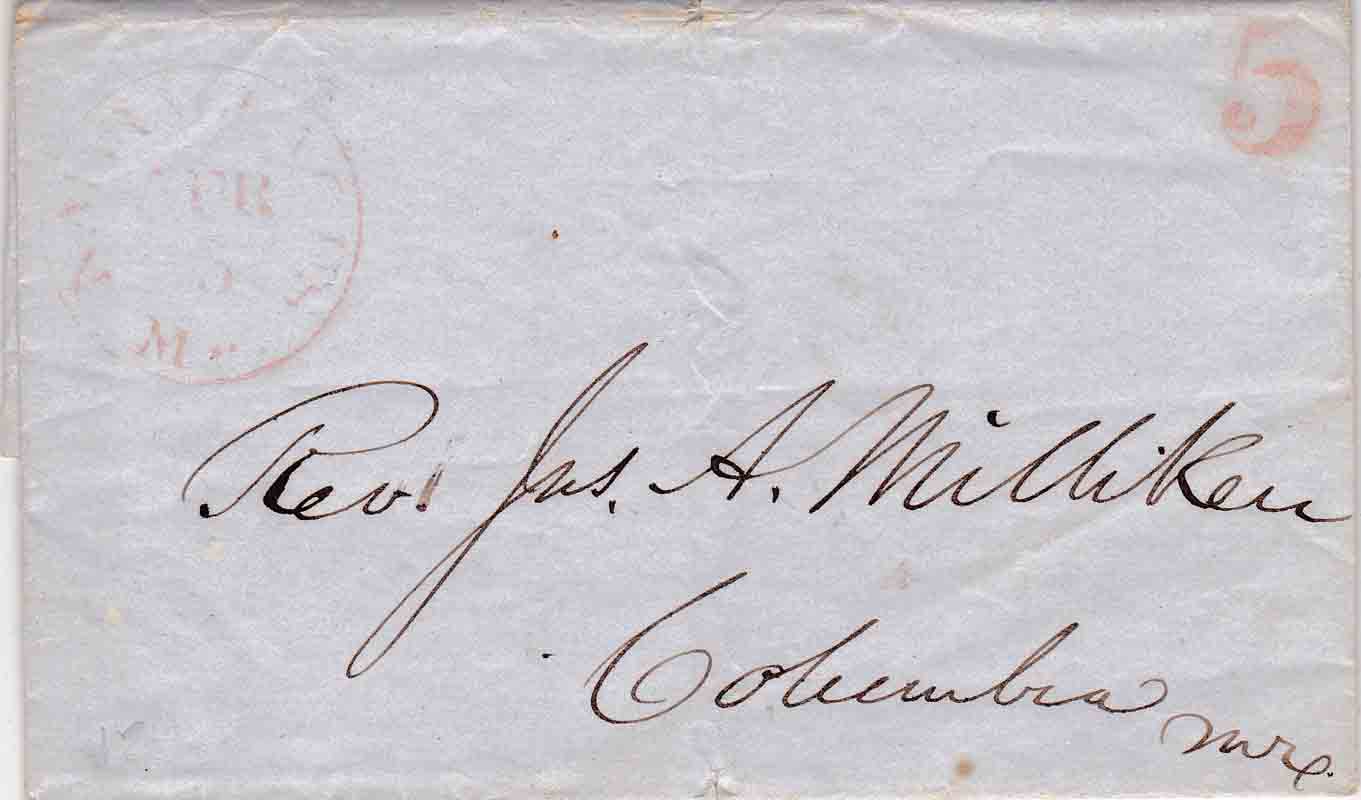 5
Rev. Jas. A. Milliken
Columbia
Me.